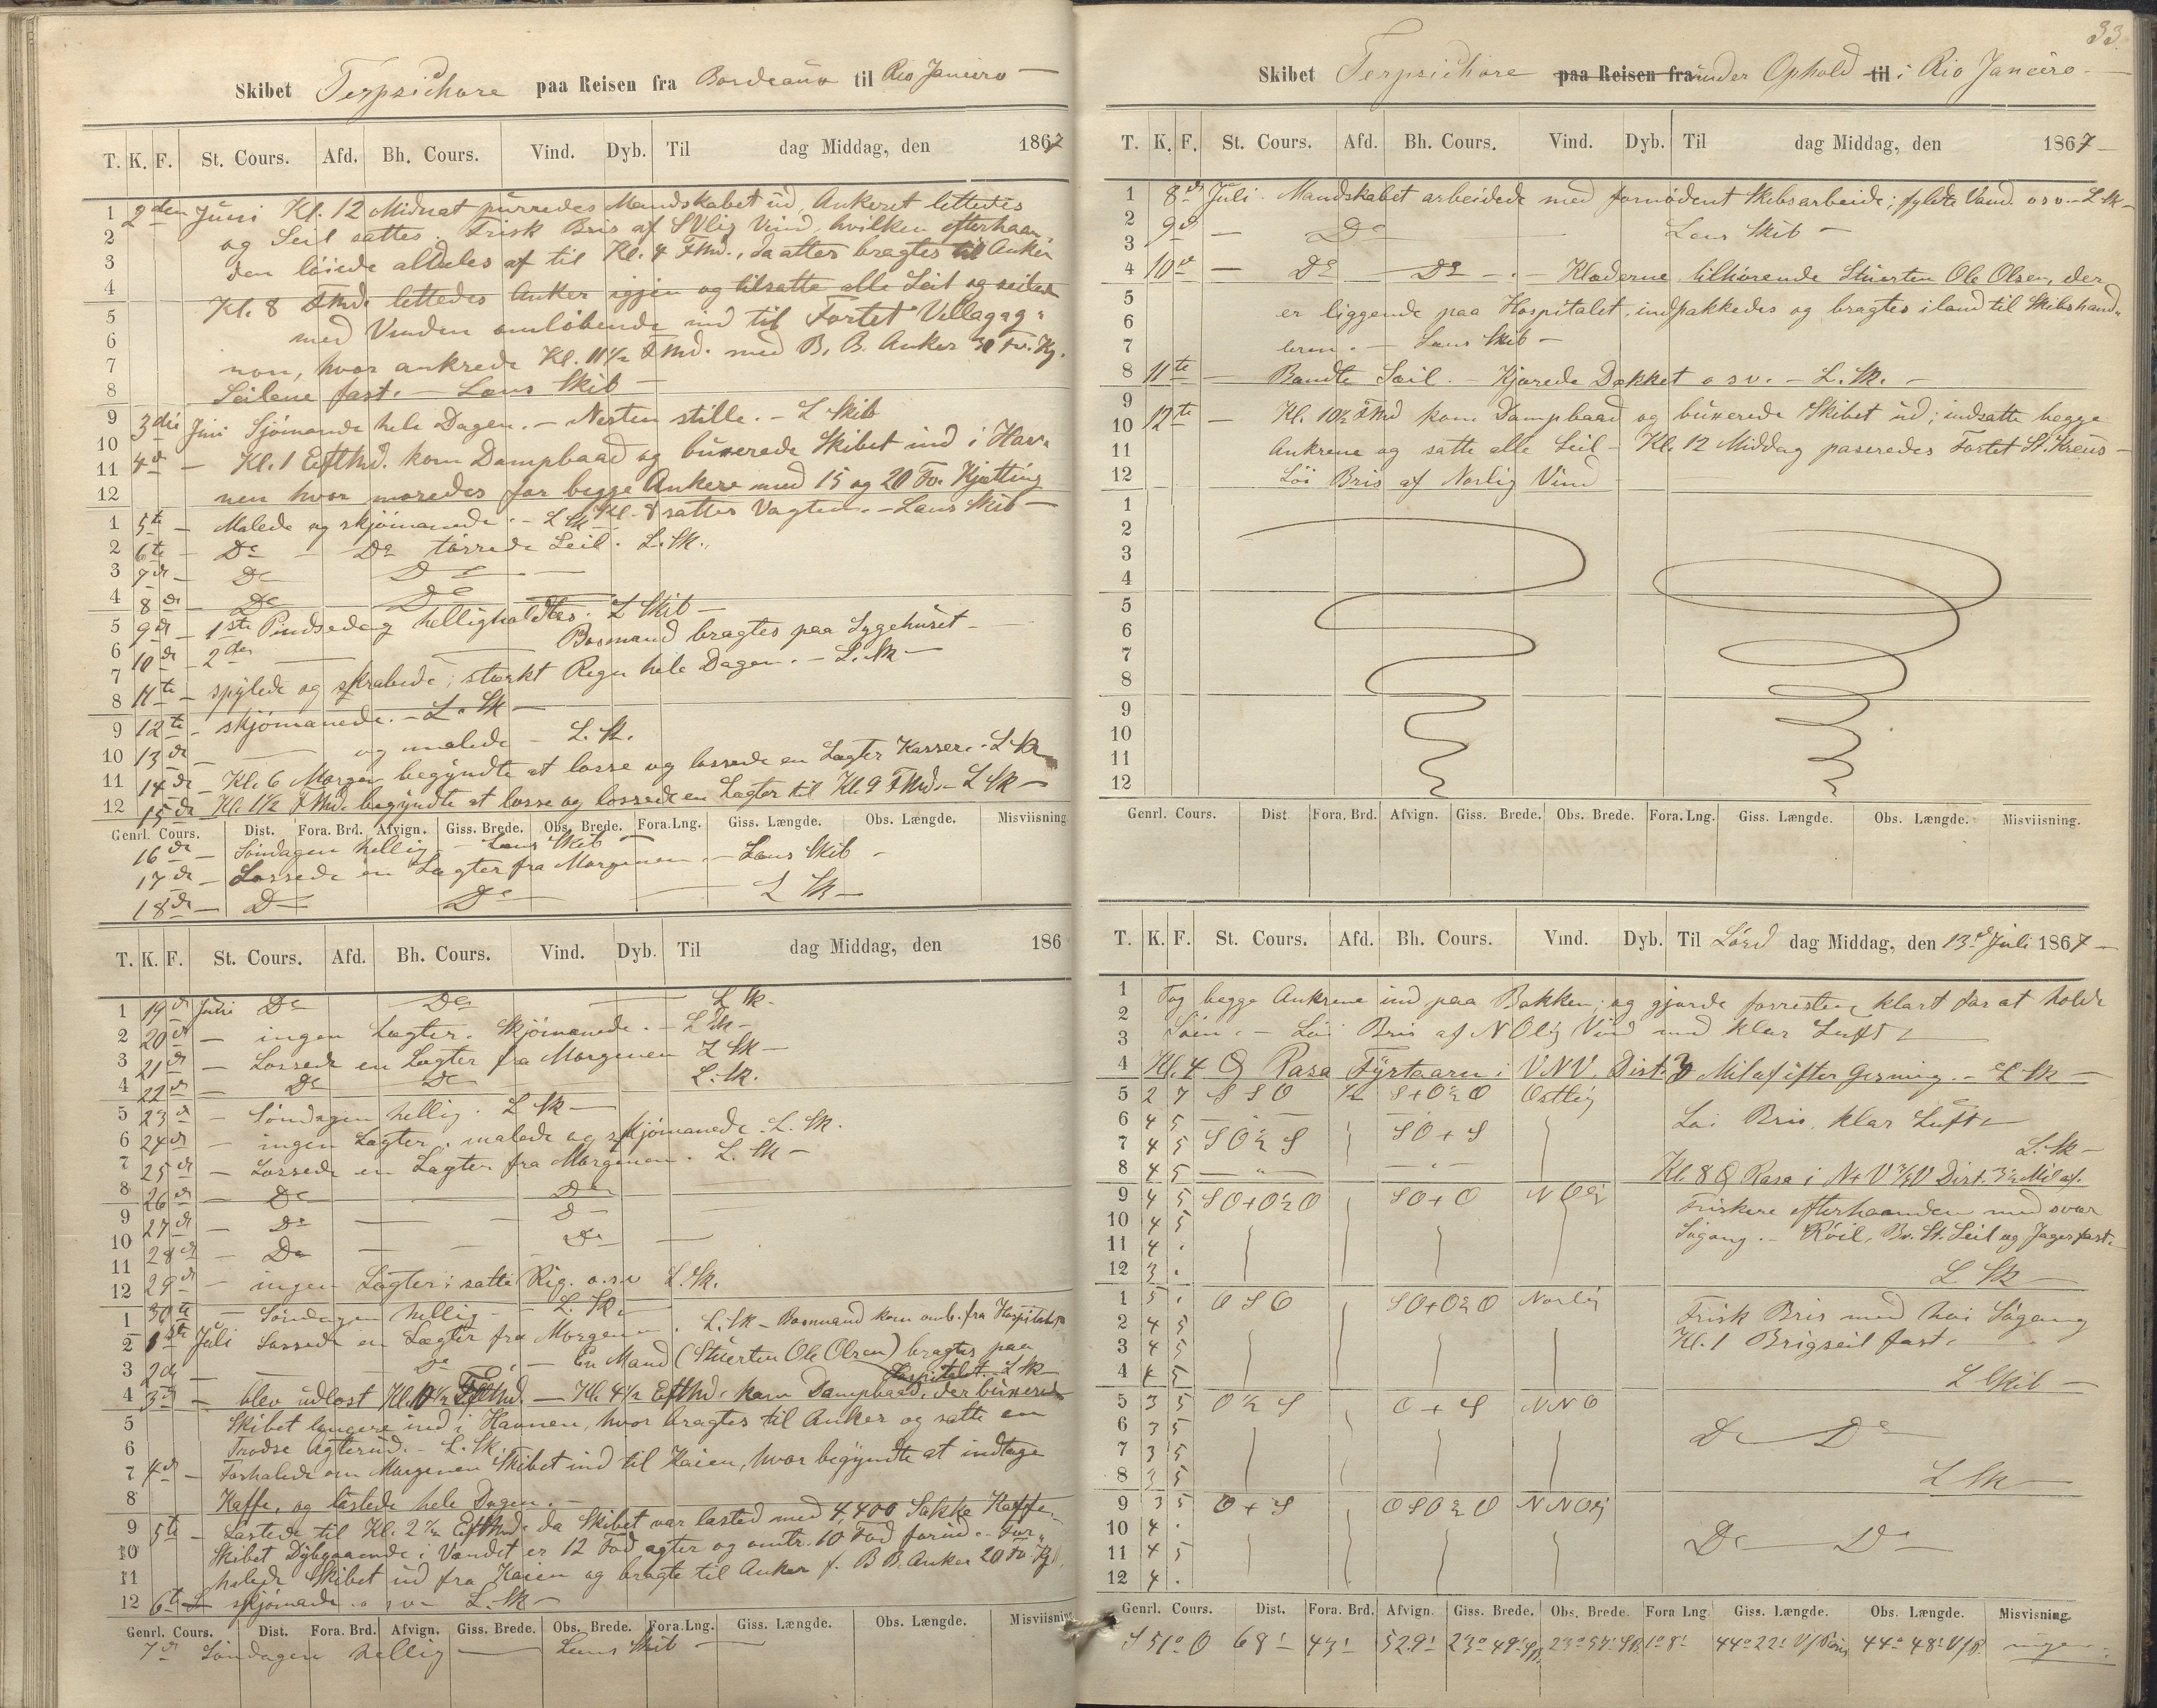 Skibet Terpsichore paa Reisen fra Bordeaux til Rio Janeiro —
T. K. F. St. Cours. Afd. Bh. Cours. Vind. Dyb. Til dag Middag, den 1867
2den Juni Kl. 12 Midnat purredes Mandskabet ud, Ankeret lettedes
og Seil sattes. Frisk Bris af SVlig Vind, hvilken efterhaan-
den löiede aldeles af til Kl. 4 FMd., da atter bragtes til Anker
Kl. 8 FMd. lettedes Anker igjen og tilsatte alle Seil og seilede
med Vinden omløbende ind til Fortet Villagag-
non, hvor ankrede Kl. 11½ FMd. med B. B. Anker 30 Fv. Kj.
Seilene fast. — Lens Skib —
3die Juni Sjömanede hele Dagen. — Nesten stille. — L Skib
4de — Kl. 1 EftMd. kom Dampbaad og buxerede Skibet ind i Hav-
nen hvor moredes for begge Ankere med 15 og 20 Fv. Kjætting
Kl. 8 sattes Vagten. — Lens Skib —
5te — Malede og skjömanede. — L Sk —
6te — Do — Do törrede Seil. L. Sk.
7de — Do Do —
8de — Do Do
9de — 1ste Pindsedag helligholdtes. L Skib —
10de — 2den — Bosmand bragtes paa Sygehuset —
11te — spylede og skrabede; stærkt Regn hele Dagen. — L. Sk —
12te — skjömanede. — L. Sk —
13de — og malede — L. Sk.
14de — Kl. 6 Morgen begyndte at losse og lossede en Lægter Kasser. — L Sk
15de Kl. 1½ FMd. begyndte at losse og lossede en Lægter til Kl. 9 FMd. — L Sk —
Genrl. Cours. Dist. Fora. Brd. Afvign. Giss. Brede. Obs. Brede. Fora. Lng. Giss. Længde. Obs. Længde. Misviisning
16de — Söndagen hellig — Lens Skib —
17de — Lossede en Lægter fra Morgenen. — Lens Skib —
18de — Do Do — L Sk —
T. K. F. St. Cours. Afd. Bh. Cours. Vind. Dyb. Til dag Middag, den 186
19de Juni Do Do — L Sk.
20de — ingen Lægter. Skjömanede. — L Sk —
21de — Lossede en Lægter fra Morgenen L Sk —
22de — Do Do L. Sk.
23de — Söndagen hellig. L Sk —
24de — ingen Lægter. malede og skjömanede. L. Sk.
25de — Lossede en Lægter fra Morgenen. L. Sk —
26de — Do Do
27de — Do — Do
28de — Do — Do —
29de — ingen Lægter; satte Rig. o.s.v L. Sk.
30te — Söndagen hellig — L. Sk.
1ste Juli Lossede en Lægter fra Morgenen. L. Sk — Bosmand kom omb. fra Hospitalet
2de — Do — En Mand (Stuerten Ole Olsen) bragtes paa
Hospitalet. L Sk —
3de — blev udlost Kl. 10½ FMd. — Kl. 4½ EftMd. kom Dampbaad, der buxerede
Skibet længere ind i Havnen, hvor bragtes til Anker og satte en
Trodse Agterud. — L. Sk.
4de — Forhalede om Morgenen Skibet ind til Kaien, hvor begyndte at indtage
Kaffe, og lastede hele Dagen. —
5te — Lastede til Kl. 2½ EftMd. da Skibet var lasted med 4,400 Sække Kaffe.
Skibet Dybgaaende i Vandet er 12 Fod agter og omtr. 10 Fod forud. — For-
halede Skibet ud fra Kaien og bragte til Anker f. B B. Anker 20 Fv. Kj.
6te — skjömanede o s v — L. Sk —
Genrl. Cours. Dist. Fora. Brd. Afvign. Giss. Brede. Obs. Brede. Fora. Lng. Giss. Længde. Obs. Længde. Misviisning
7de Söndagen hellig — Lens Skib —
33.
Skibet Terpsichore paa Reisen fra under Ophold til i Rio Janeiro —
T. K. F. St. Cours. Afd. Bh. Cours. Vind. Dyb. Til dag Middag, den 1867 —
8de Juli. Mandskabet arbeidede med fornödent Skibsarbeide; fyldte Vand. o s v. — L Sk —
9de — Do — Lens Skib —
10de — Do — Do — Klæderne tilhörende Stuerten Ole Olsen, der
er liggende paa Hospitalet, indpakkedes og bragtes iland til Skibshand-
leren. — Lens Skib —
11te — Bændte Seil. — Kjærede Dækket o s v. — L. Sk. —
12te — Kl. 10½ FMd kom Dampbaad og buxerede Skibet ud; indsatte begge
Ankrene og satte alle Seil — Kl. 12 Middag paseredes Fortet St. Kreus —
Löi Bris af Norlig Vind
Genrl. Cours. Dist Fora. Brd. Afvign. Giss. Brede. Obs. Brede. Fora. Lng. Giss. Længde. Obs. Længde. Misviisning.
T. K. F. St. Cours. Afd. Bh. Cours. Vind. Dyb. Til Lörd dag Middag, den 13de Juli 1867 —
1 Tog begge Ankrene ind paa Bakken; og gjorde forresten klart for at holde
2 Söen. — Löi Bris af NOlig Vind med klar Luft
4 Kl. 4 Rasa Fyrtaarn i VNV. Dist. 3 Mil af efter Gisning. — L Sk —
5 2 7 S S O ½ S+O½O Ostlig
6 4 5 — — Löi Bris, klar Luft
7 4 5 SO½S SO+S L. Sk —
8 4 5 — " — — " — Kl. 8 Rasa i N+V½V Dist. 3½ Mil af.
9 4 5 SO+O½O SO+O NOlig Friskere efterhaanden med svær
10 4 5 Sögang. — Röil, Br. St. Seil og Jager fast.
11 4 .
12 3 . L Sk —
1 5 . O S O SO+O½O Norlig Frisk Bris med höi Sögang
2 4 5 Kl. 1 Brigseil fast.
3 4 5
4 4 5 L Skib —
5 3 5 O½S O+S NNO
6 3 5 Do Do
7 3 5
8 3 5 L Sk —
9 3 5 O+S OSO½O NNOlig
10 4 . Do Do
11 4 5
12 4 .
Genrl. Cours. Dist. Fora. Brd. Afvign. Giss. Brede. Obs. Brede. Fora Lng. Giss. Længde. Obs. Længde. Misvisning.
S 51° O 68' 43' 52.9' 23° 49' SB. 23° 57' SB. 1° 8' 44° 22' V/Paris 44° 48' V/P. ingen.